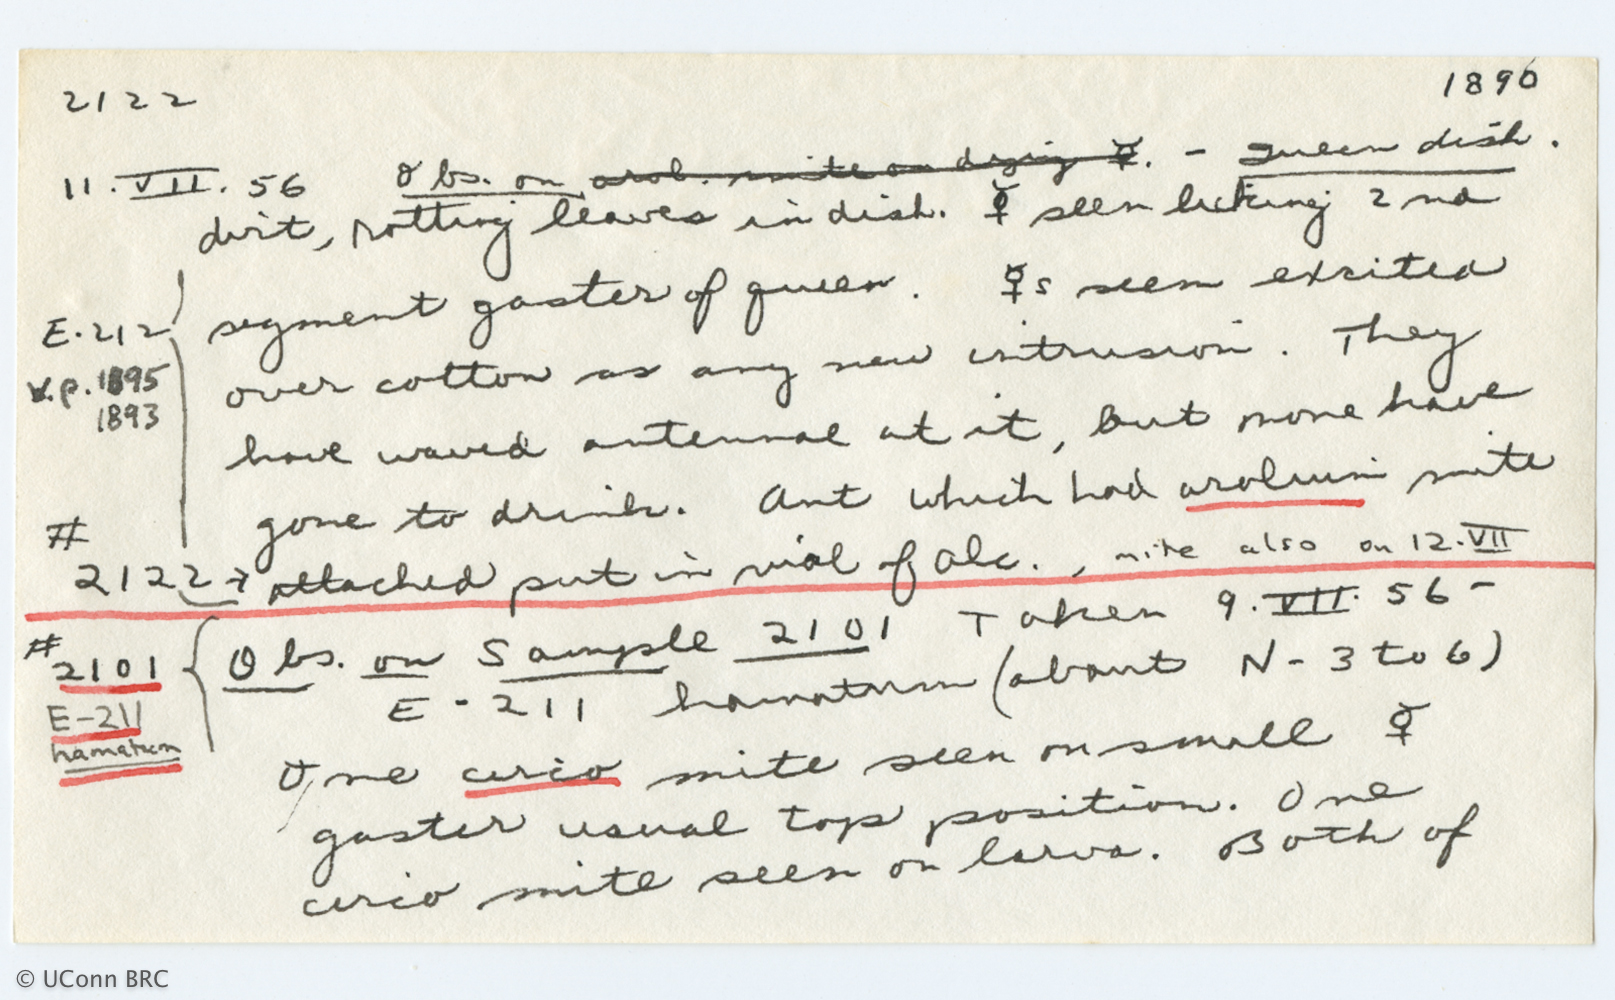 2122
1890
11.VII.56 Obs. on arol. mite on dying ☿. - Queen dish.
dirt, rotting leaves in dish. ☿ seen licking 2nd
E.212 segment gaster of queen. ☿s seem excited
v.p. 1895 over cotton as any new intrusion. They
1893
have waved antennae at it, but none have
gone to drink. Ant which had arolium mite
#
2122 → attached put in vial of alc., mite also on 12.VII
#
2101 { Obs. on Sample 2101 Taken 9.VII.56 -
E-211 E-211 hamatum (about N-3 to 6)
hamatum
One circo mite seen on small ☿
gaster usual top position. One
circo mite seen on larva. Both of
© UConn BRC